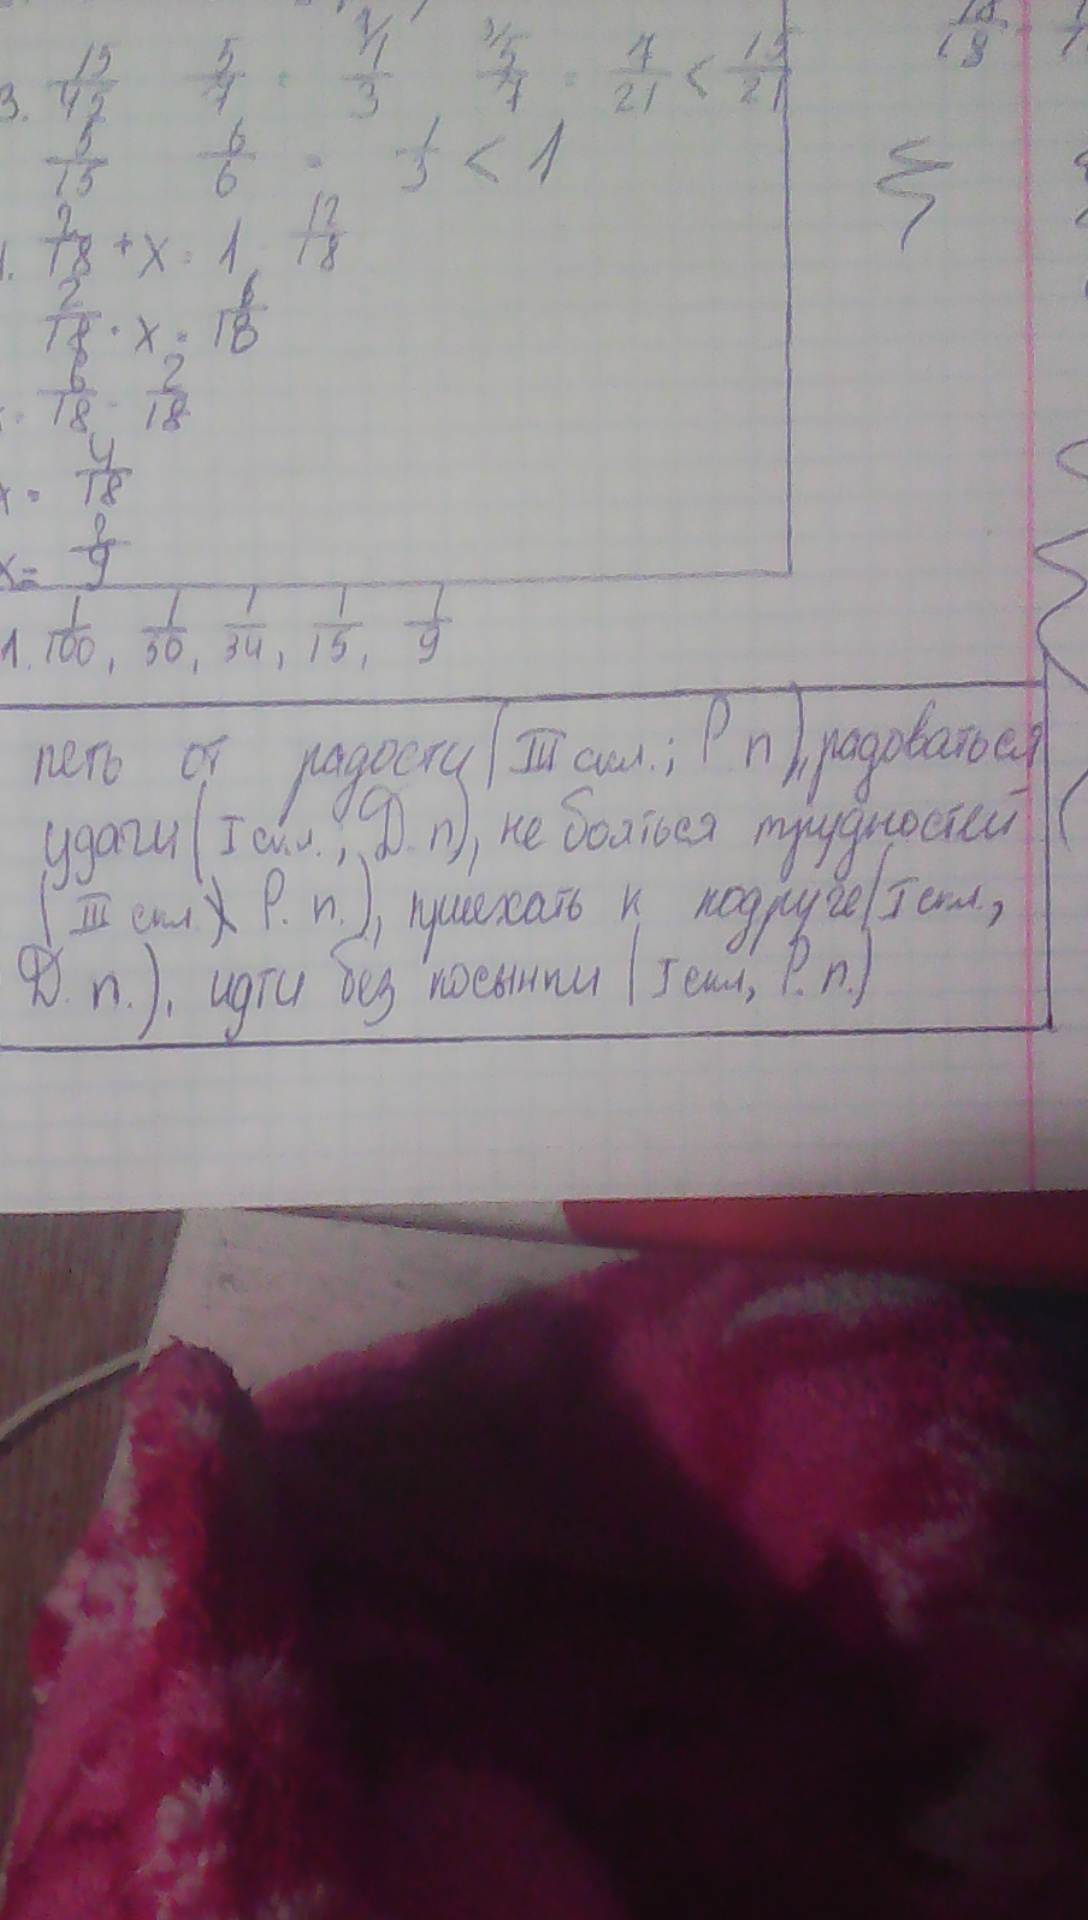 3. 15/42 5/7 · 1/3 5/7 · 7/21 < 15/21
5/15 6/6 · 1/3 < 1
2/18 + x = 1 - 12/18
2/18 + x = 6/18
x = 6/18 - 2/18
x = 4/18
x = 2/9
1. 1/100, 1/50, 1/34, 1/15, 1/9
петь от радости (III скл.; Р п), радоваться
удачи (I скл.; Д. п), не бояться трудностей
(III скл) Р. п.), приехать к подруге (I скл.,
Д. п.), идти без косынки (I скл, Р. п.)